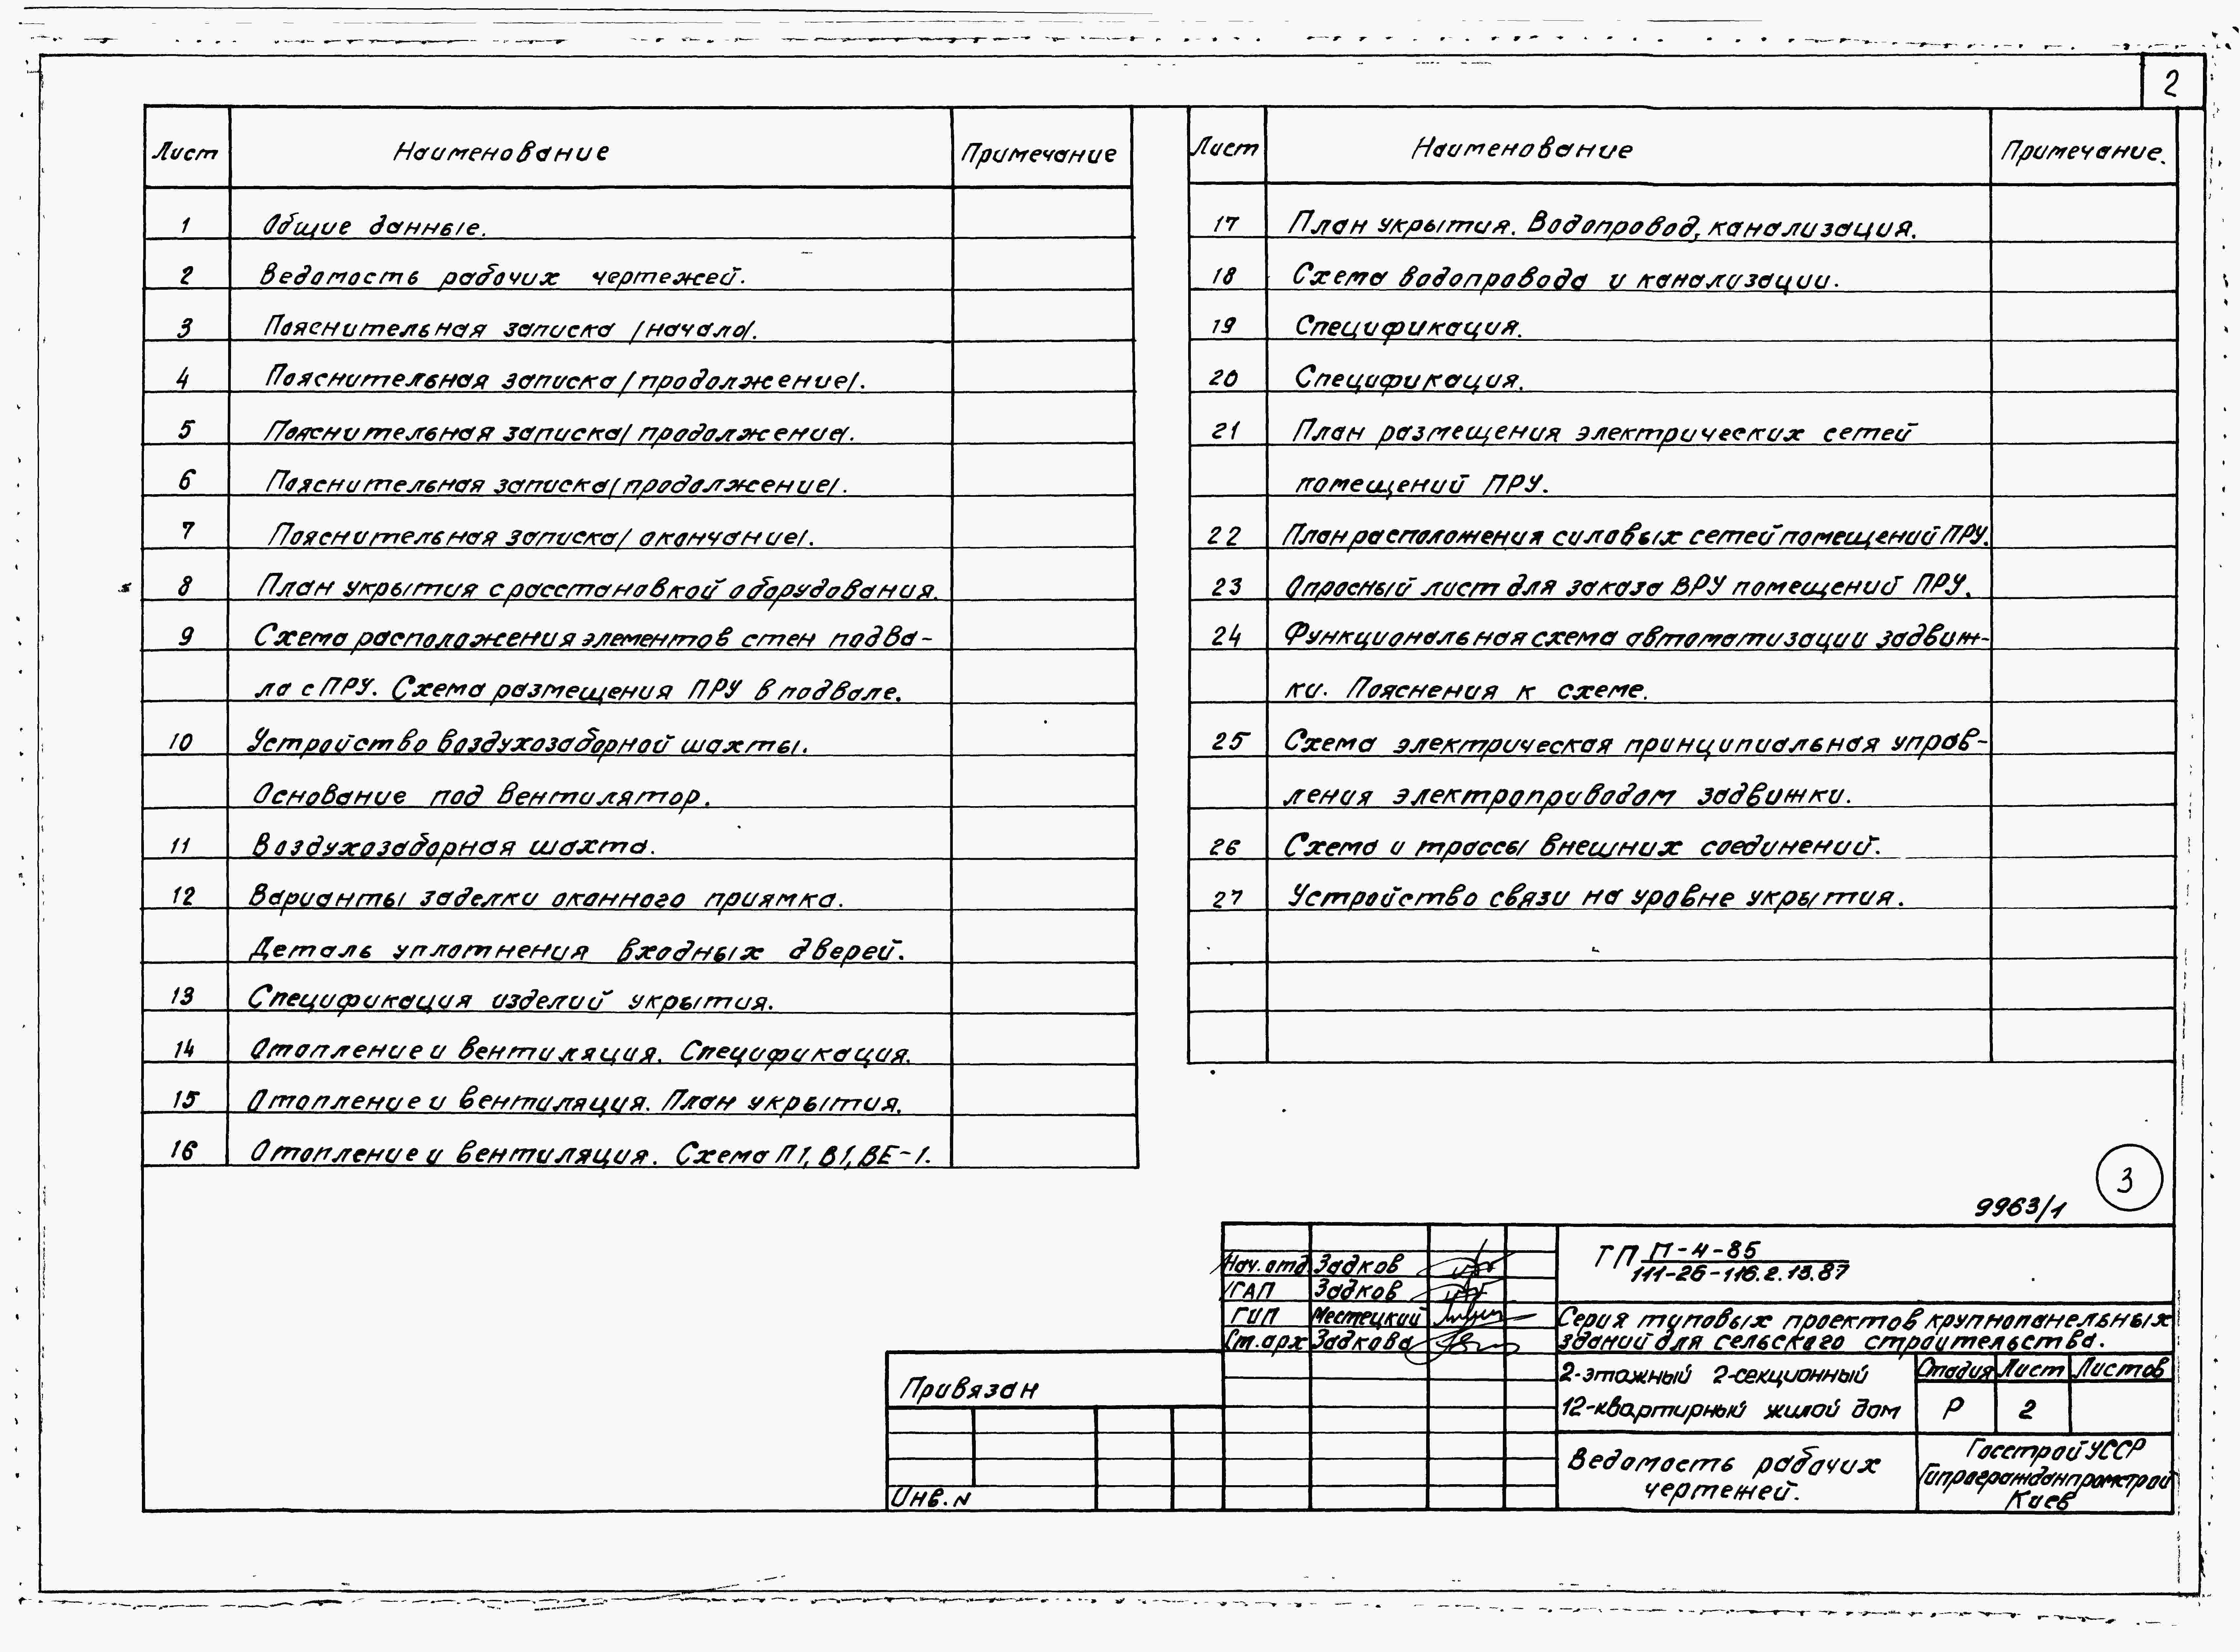 2
Лист Наименование Примечание
1 Общие данные.
2 Ведомость рабочих чертежей.
3 Пояснительная записка /начало/.
4 Пояснительная записка /продолжение/.
5 Пояснительная записка /продолжение/.
6 Пояснительная записка /продолжение/.
7 Пояснительная записка /окончание/.
8 План укрытия с расстановкой оборудования.
9 Схема расположения элементов стен подва-
ла с ПРУ. Схема размещения ПРУ в подвале.
10 Устройство воздухозаборной шахты.
Основание под вентилятор.
11 Воздухозаборная шахта.
12 Варианты заделки оконного приямка.
Деталь уплотнения входных дверей.
13 Спецификация изделий укрытия.
14 Отопление и вентиляция. Спецификация.
15 Отопление и вентиляция. План укрытия.
16 Отопление и вентиляция. Схема П1, В1, ВЕ-1.
Лист Наименование Примечание.
17 План укрытия. Водопровод, канализация.
18 Схема водопровода и канализации.
19 Спецификация.
20 Спецификация.
21 План размещения электрических сетей
помещений ПРУ.
22 План расположения силовых сетей помещений ПРУ.
23 Опросный лист для заказа ВРУ помещений ПРУ.
24 Функциональная схема автоматизации задвиж-
ки. Пояснения к схеме.
25 Схема электрическая принципиальная управ-
ления электроприводом задвижки.
26 Схема и трассы внешних соединений.
27 Устройство связи на уровне укрытия.
3
9963/1
Нач. отд. Задков
ГАП Задков
ГИП Местецкий
Ст. арх Задкова
ТП П-4-85
111-26-116.2.13.87
Серия типовых проектов крупнопанельных
зданий для сельского строительства.
2-этажный 2-секционный
12-квартирный жилой дом
Стадия Лист Листов
Р 2
Ведомость рабочих
чертежей.
Госстрой УССР
Гипрогражданпромстрой
Киев
Привязан
Инв. N